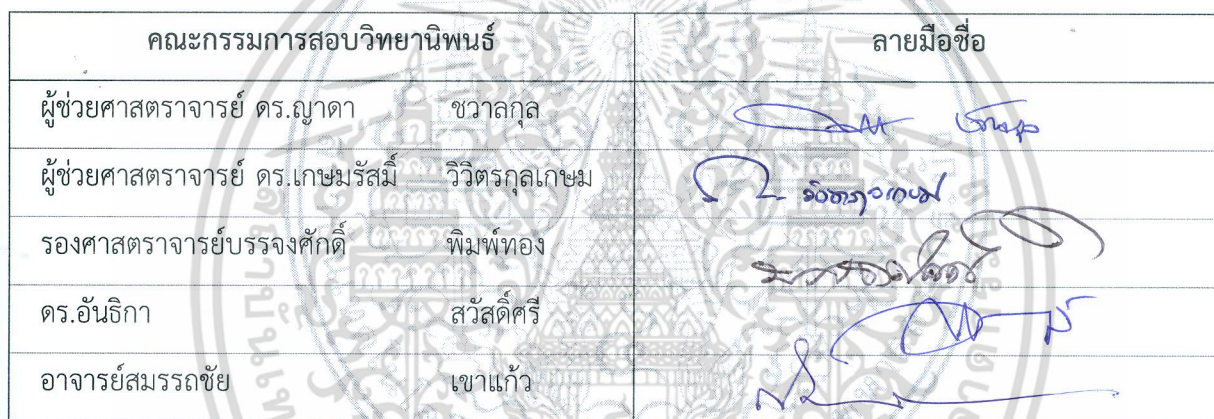 คณะกรรมการสอบวิทยานิพนธ์ ลายมือชื่อ
ผู้ช่วยศาสตราจารย์ ดร.ญาดา ชวาลกุล
ผู้ช่วยศาสตราจารย์ ดร.เกษมรัสมิ์ วิวิตรกุลเกษม
รองศาสตราจารย์บรรจงศักดิ์ พิมพ์ทอง
ดร.อันธิกา สวัสดิ์ศรี
อาจารย์สมรรถชัย เขาแก้ว